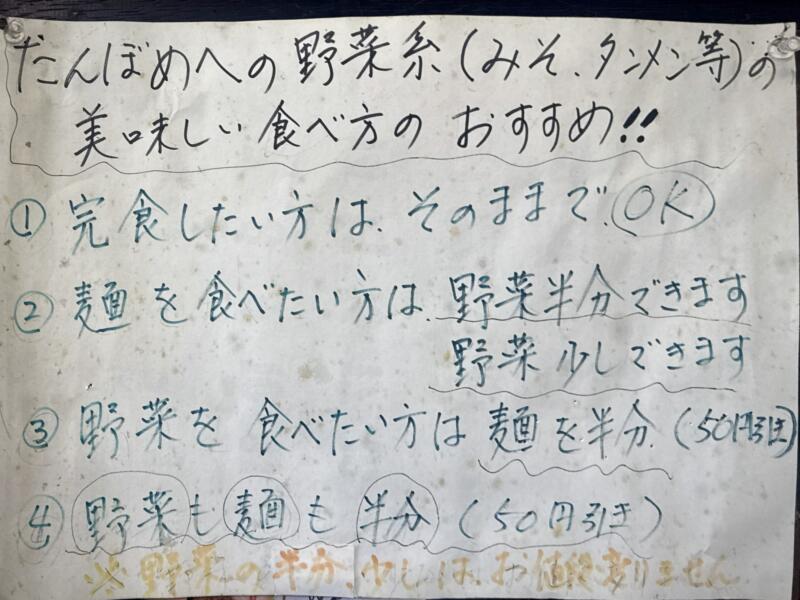 たんぼめへの野菜系(みそ、タンメン等)の
美味しい食べ方のおすすめ!!
① 完食したい方は、そのままで、OK
② 麺を食べたい方は、野菜半分できます
野菜少しできます
③ 野菜を食べたい方は麺を半分(50円引き)
④ 野菜も麺も半分(50円引き)
※野菜の半分、少しは、お値段変りません